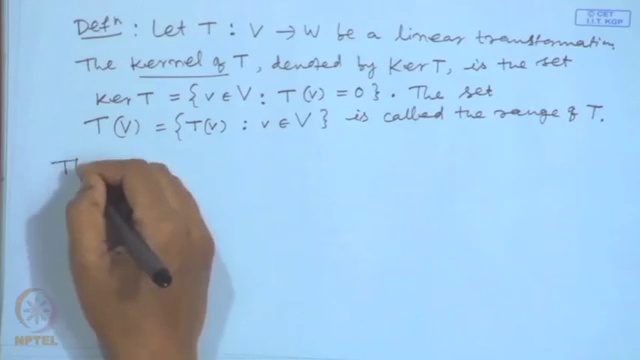 © CET
I.I.T. KGP
Defⁿ : Let T : V → W be a linear transformation.
The Kernel of T, denoted by Ker T, is the set
Ker T = { v ∈ V : T(v) = 0 } . The set
T(V) = { T(v) : v ∈ V } is called the range of T.
Th
NPTEL